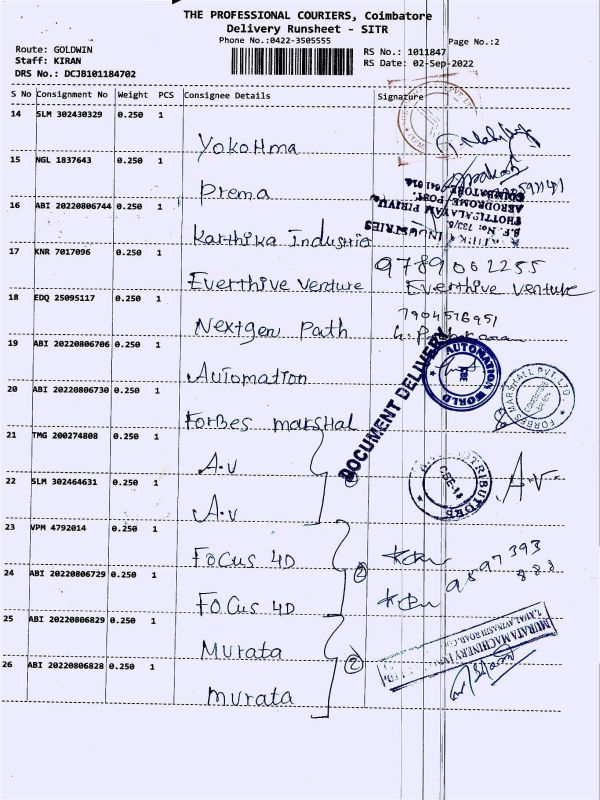 THE PROFESSIONAL COURIERS, Coimbatore
Delivery Runsheet - SITR
Phone No.:0422-3505555
Page No.:2
Route: GOLDWIN
RS No.: 1011847
Staff: KIRAN
RS Date: 02-Sep-2022
DRS No.: DCJB101184702
S No Consignment No Weight PCS Consignee Details Signature
14 SLM 302430329 0.250 1
Yokohma
15 NGL 1837643 0.250 1
Prema
16 ABI 20220806744 0.250 1
Karthika Industrie
INDUSTRIES
THOTTIPALAYAM PIRIVU,
AERODROME POST,
COIMBATORE
17 KNR 7017096 0.250 1
9789002255
Everthive venture Everthive venture
18 EDQ 25095117 0.250 1
7904516951
Nextgen Path
19 ABI 20220806706 0.250 1
Automation
AUTOMATION WORLD
20 ABI 20220806730 0.250 1
Forbes marshal
FORBES MARSHALL PVT LTD
DOCUMENT DELIVERY
21 TMG 200274808 0.250 1
A.V
22 SLM 302464631 0.250 1
A.V
DISTRIBUTORS
CBE-14
A.V.
23 VPM 4792014 0.250 1
Focus 4D
24 ABI 20220806729 0.250 1
2
Focus 4D
9597393
888
25 ABI 20220806829 0.250 1
Murata
2
MURATA MACHINERY
26 ABI 20220806828 0.250 1
murata